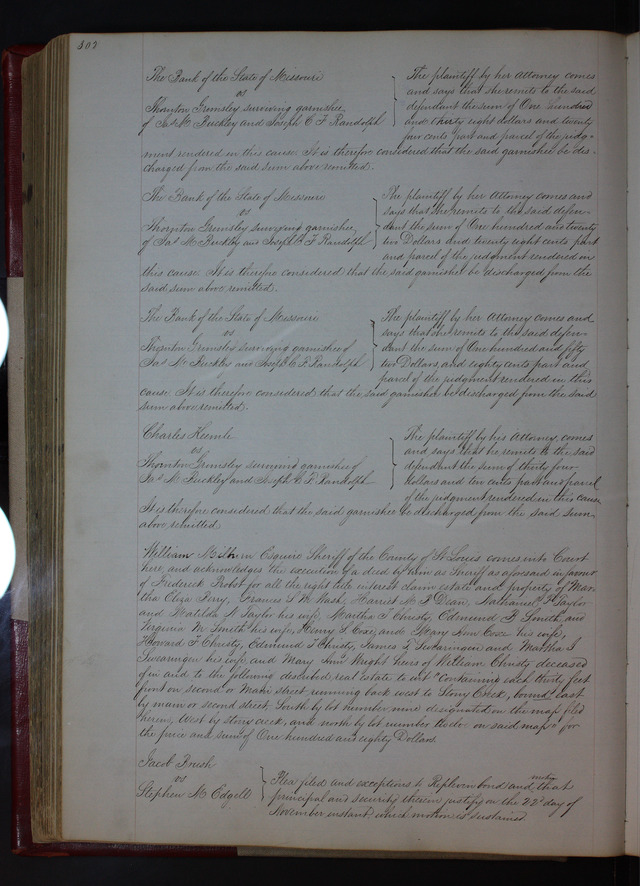 402
The Bank of the State of Missouri
vs
Thornton Grimsley surviving garnishee
of Jas. M. Buckley and Joseph C. F. Randolph
The plaintiff by her Attorney comes
and says that she remits to the said
defendant the sum of One hundred
and thirty eight dollars and twenty
four cents part and parcel of the judg-
ment rendered in this cause. It is therefore considered that the said garnishee be dis-
charged from the said sum above remitted.
The Bank of the State of Missouri
vs
Thornton Grimsley surviving garnishee
of Jas. M. Buckley and Joseph C. F. Randolph
The plaintiff by her Attorney comes and
says that she remits to the said defen-
dant the sum of One hundred and twenty
two Dollars and twenty eight cents part
and parcel of the judgment rendered in
this cause. It is therefore considered that the said garnishee be discharged from the
said sum above remitted.
The Bank of the State of Missouri
vs
Thornton Grimsley surviving garnishee of
Jas. M. Buckley and Joseph C. F. Randolph
The plaintiff by her Attorney comes and
says that she remits to the said defen-
dant the sum of One hundred and fifty
two Dollars and eighty cents part and
parcel of the judgment rendered in this
cause. It is therefore considered that the said garnishee be discharged from the said
sum above remitted.
Charles Keemle
vs
Thornton Grimsley surviving garnishee of
Jas. M. Buckley and Joseph C. F. Randolph
The plaintiff by his Attorney comes
and says that he remits to the said
defendant the sum of thirty four
dollars and ten cents part and parcel
of the judgment rendered in this cause
It is therefore considered that the said garnishee be discharged from the said sum
above remitted
William Milburn Esquire Sheriff of the County of St Louis comes into Court
here, and acknowledges the execution of a deed by him as Sheriff as aforesaid in favour
of Frederick Probst for all the right title interest claim estate and property of Mar-
tha Eliza Perry, Frances S. M. Wash, Harriet M. P. Dean, Nathaniel P. Taylor
and Matilda N. Taylor his wife, Martha T. Christy, Edmund B. Smith, and
Virginia M. Smith his wife, Henry S. Coxe, and Mary Ann Coxe his wife,
Howard F. Christy, Edmund T. Christy, James T. Swearingen and Martha I.
Swearingen his wife and Mary Ann Wright heirs of William Christy deceased
of in and to the following described real Estate to wit "Containing each thirty feet
front on second or Main street running back west to Stony Creek, bound east
by main or second street South by lot number nine designated on the map filed
herein, West by stony creek, and north by lot number twelve on said map" for
the price and sum of One hundred and eighty Dollars.
Jacob Brush
vs
Stephen M. Edgell
Plea filed and exceptions to Replevin bond and motion that
principal and security therein justify on the 22d day of
November instant which motion is sustained